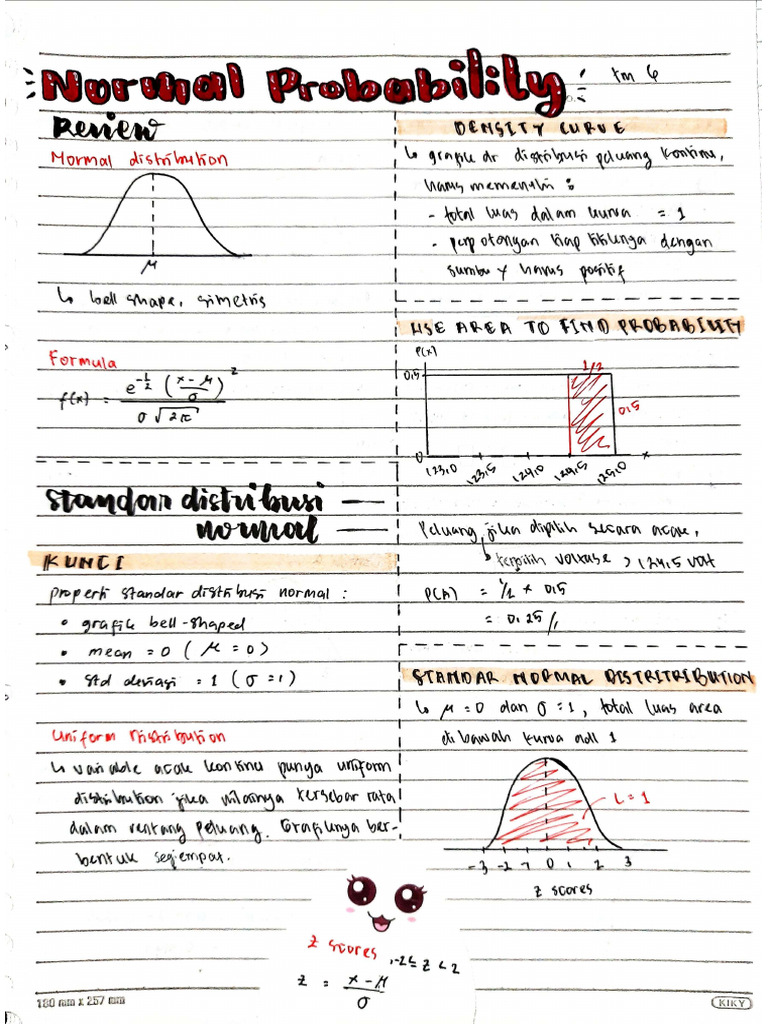 Normal Probability
tm 6
Review
Normal distribution
μ
↳ bell shape, simetris
Formula
f(x) = e^-1/2 ((x-μ)/σ)^2 / σ√2π
standar distribusi —
normal —
KUNCI
properti standar distribusi normal :
• grafik bell-shaped
• mean = 0 (μ = 0)
• Std deviasi = 1 (σ = 1)
Uniform Distribution
↳ variable acak kontinu punya uniform
distribution jika nilainya tersebar rata
dalam rentang peluang. Grafiknya ber-
bentuk segiempat.
DENSITY CURVE
↳ grafik dr distribusi peluang kontinu,
harus memenuhi :
- total luas dalam kurva = 1
- perpotongan tiap titiknya dengan
sumbu y harus positif
USE AREA TO FIND PROBABILITY
P(x)
1/2
0,5
0,5
0
123,0 123,5 124,0 124,5 125,0 x
Peluang jika dipilih secara acak,
↳ terpilih voltase > 124,5 volt
P(A) = 1/2 × 0,5
= 0,25 //
STANDAR NORMAL DISTRITRIBUTION
↳ μ = 0 dan σ = 1, total luas area
dibawah kurva adl 1
L = 1
-3 -2 -1 0 1 2 3
z scores
z scores , -2 ≤ z < 2
z = (x-μ)/σ
180 mm x 257 mm
KIKY